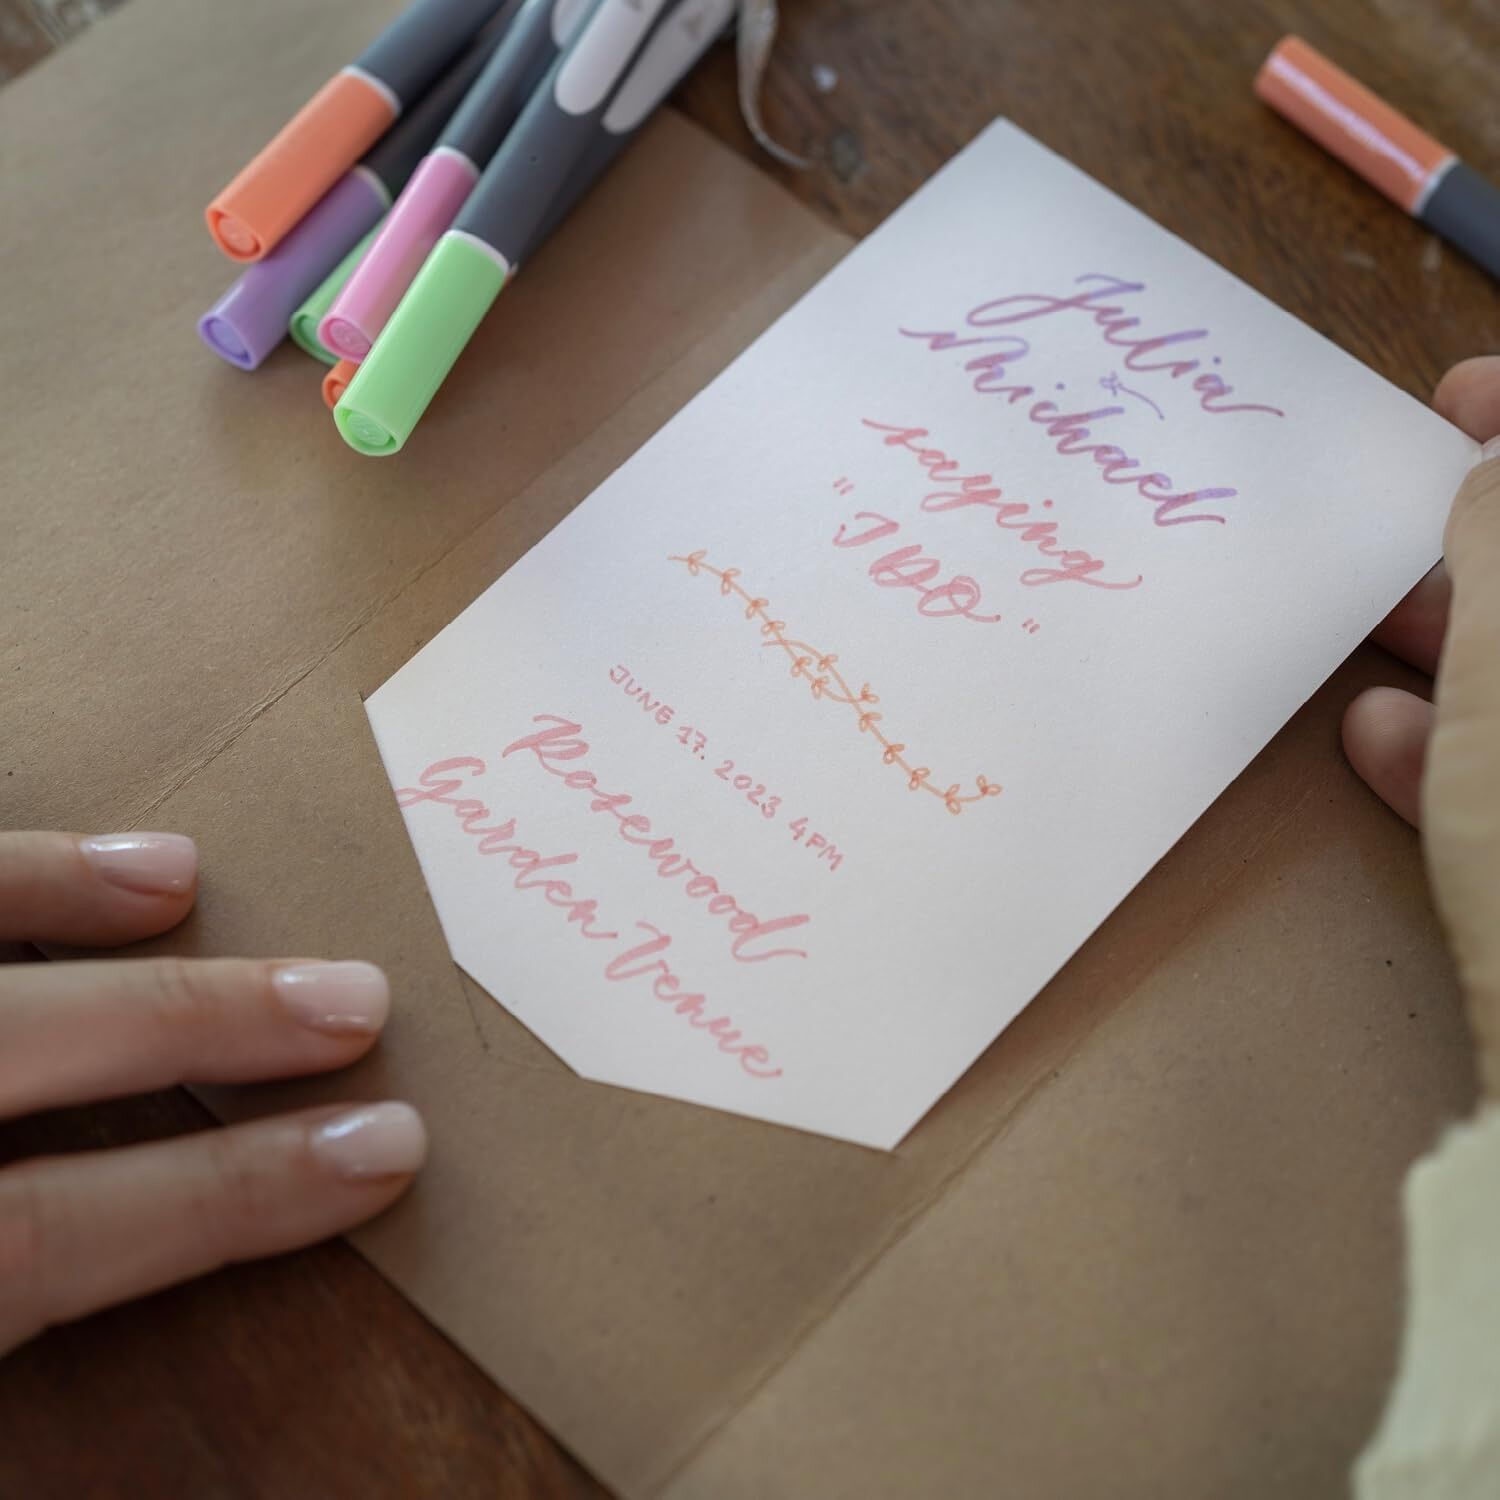 Julia
&
Michael
saying
"I DO"
JUNE 17. 2023 4PM
Rosewood
Garden Venue